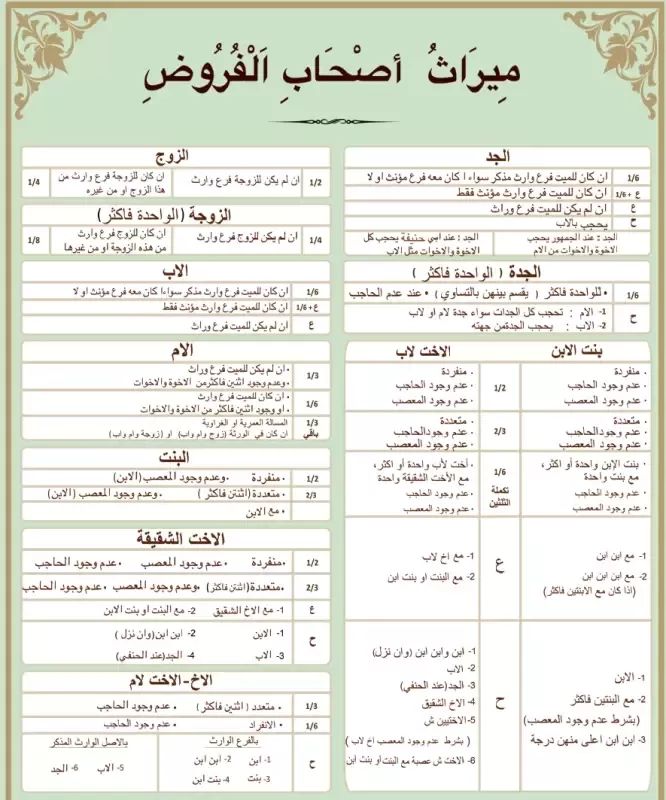 مِيرَاثُ أصْحَابِ اَلْفُرُوضِ
الجد
1/6 ان كان للميت فرع وارث مذكر سواء ا كان معه فرع مؤنث او لا
ع +1/6 ان كان للميت فرع وارث مؤنث فقط
ع ان لم يكن للميت فرع وراث
ح يحجب بالاب
الجد : عند الجمهور يحجب الاخوة والاخوات من الام
الجد : عند ابي حنيفة يحجب كل الاخوة والاخوات مثل الاب
الجدة ( الواحدة فاكثر )
1/6 • للواحدة فاكثر ( يقسم بينهن بالتساوي ) • عند عدم الحاجب
ح 1- الام : تحجب كل الجدات سواء جدة لام او لاب
2- الاب : يحجب الجدةمن جهته
بنت الابن
الاخت لاب
• منفردة
• عدم وجود الحاجب
• عدم وجود المعصب
1/2
• منفردة
• عدم وجود الحاجب
• عدم وجود المعصب
• متعددة
• عدم وجودالحاجب
• عدم وجود المعصب
2/3
• متعددة
• عدم وجودالحاجب
• عدم وجود المعصب
• بنت الإبن واحدة أو اكثر،
مع بنت واحدة
• عدم وجود الحاجب
• عدم وجود المعصب
1/6
تكملة
الثلثين
• أخت لأب واحدة أو اكثر،
مع الأخت الشقيقة واحدة
• عدم وجود الحاجب
• عدم وجود المعصب
1- مع ابن ابن
2- مع ابن ابن ابن
(اذا كان مع الابنتين فاكثر)
ع
1- مع اخ لاب
2- مع البنت او بنت ابن
1- الابن
2- مع البنتين فاكثر
(بشرط عدم وجود المعصب)
3- ابن ابن اعلى منهن درجة
ح
1- ابن وابن ابن (وان نزل)
2- الاب
3- الجد(عند الحنفي)
4- الاخ الشقيق
5- الاختيين ش
( بشرط عدم وجود المعصب اخ لاب )
6- الاخت ش عصبة مع البنت أو بنت ابن
الزوج
1/2 ان لم يكن للزوجة فرع وارث
1/4 ان كان للزوجة فرع وارث من
هذا الزوج او من غيره
الزوجة (الواحدة فاكثر)
1/4 ان لم يكن للزوج فرع وارث
1/8 ان كان للزوج فرع وارث
من هذه الزوجة او من غيرها
الاب
1/6 ان كان للميت فرع وارث مذكر سواءا كان معه فرع مؤنث او لا
ع+1/6 ان كان للميت فرع وارث مؤنث فقط
ع ان لم يكن للميت فرع وراث
الام
1/3 • ان لم يكن للميت فرع وراث
• وعدم وجود اثنين فاكثرمن الاخوة والاخوات
1/6 • ان كان للميت فرع وارث
• او وجود اثنين فاكثر من الاخوة والاخوات
1/3 المسالة العمرية او الغراوية
باقي ان كان في الورثة (زوج وام واب) او (زوجة وام واب)
البنت
1/2 • منفردة • وعدم وجود المعصب(الابن)
2/3 • متعددة (اثنتن فاكثر ) • وعدم وجود المعصب (الابن)
• مع الابن
الاخت الشقيقة
1/2 •منفردة • عدم وجود المعصب • عدم وجود الحاجب
2/3 • متعددة(اثنتن فاكثر) •وعدم وجود المعصب • عدم وجود الحاجب
ع 1- مع الاخ الشقيق 2- مع البنت او بنت الابن
ح 1- الابن 2- ابن ابن(وان نزل )
3- الاب 4- الجد(عند الحنفي)
الاخ-الاخت لام
1/3 • متعدد ( اثنين فاكثر) • عدم وجود الحاجب
1/6 • الانفراد • عدم وجود الحاجب
ح
بالفرع الوارث
1- ابن 2- ابن ابن
3- بنت 4- بنت ابن
بالاصل الوارث المذكر
5- الاب 6- الجد